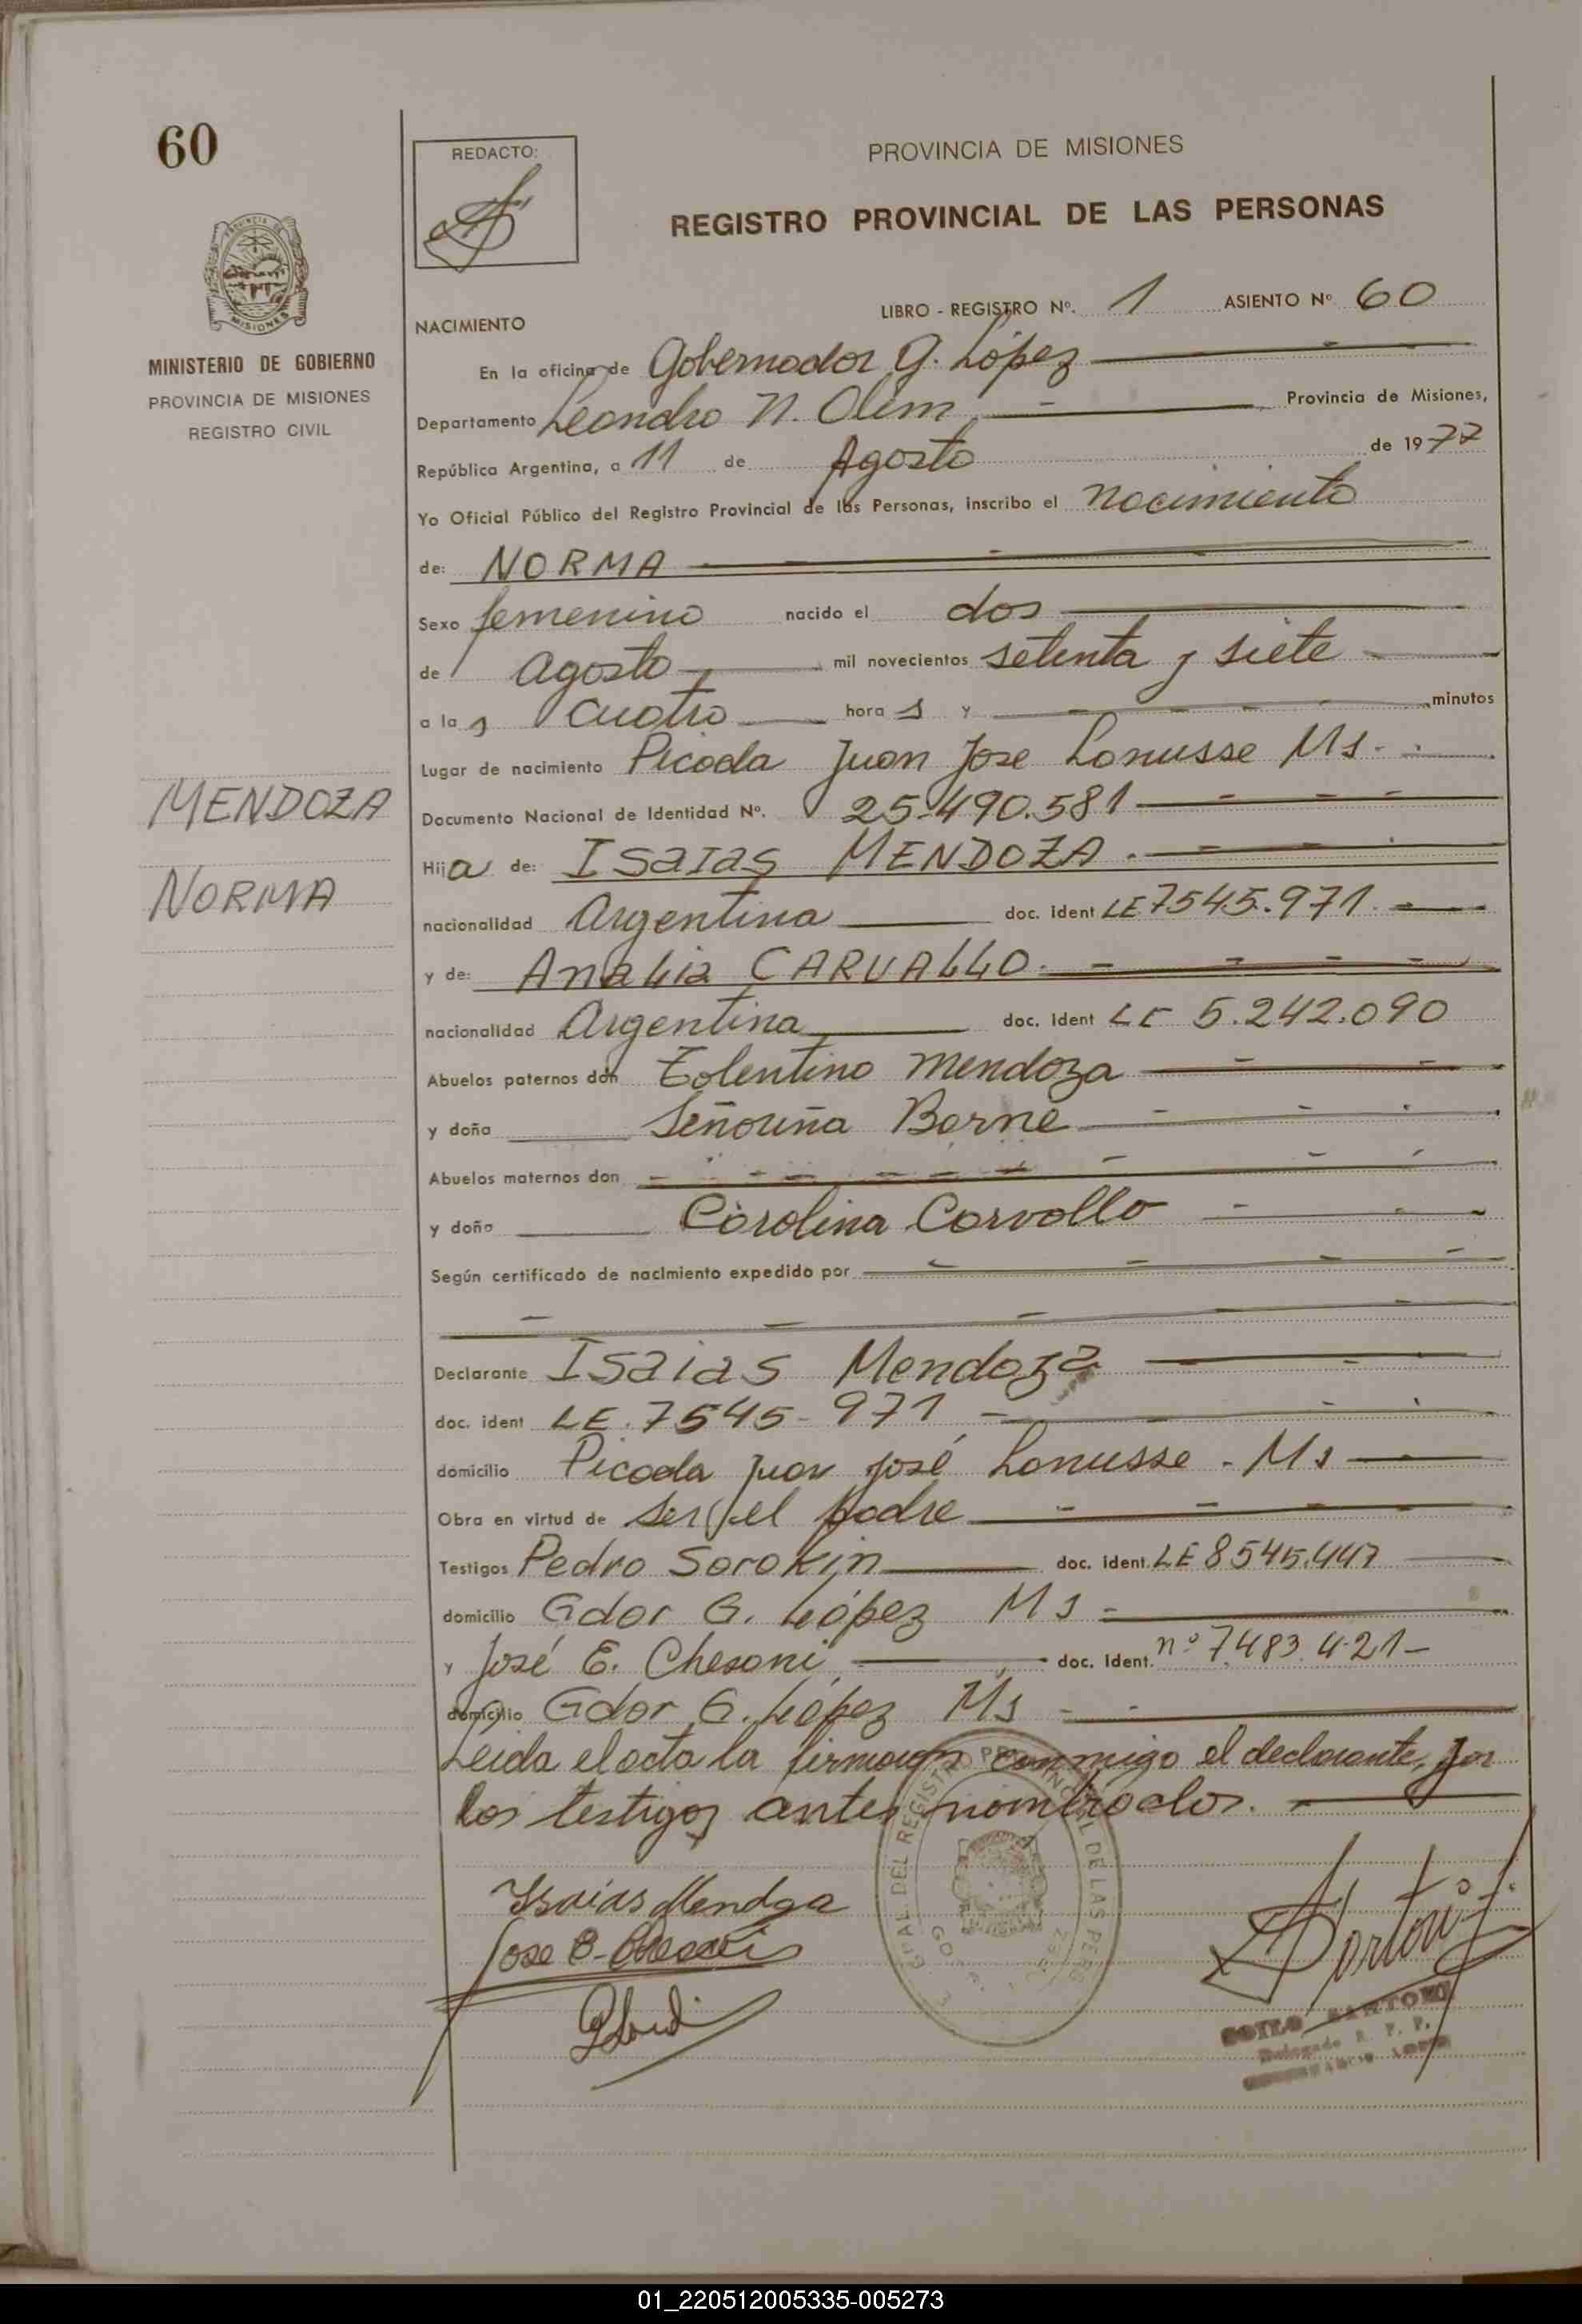 60
REDACTO:
PROVINCIA DE MISIONES
REGISTRO PROVINCIAL DE LAS PERSONAS
PROVINCIA DE
MISIONES
MINISTERIO DE GOBIERNO
PROVINCIA DE MISIONES
REGISTRO CIVIL
LIBRO - REGISTRO Nº. 1 ASIENTO Nº 60
NACIMIENTO
En la oficina de Gobernador G. López
Departamento Leandro N. Alem Provincia de Misiones,
República Argentina, a 11 de Agosto de 1977
Yo Oficial Público del Registro Provincial de las Personas, inscribo el nacimiento
de: NORMA
Sexo femenino nacido el dos
de agosto mil novecientos setenta y siete
a las cuatro horas y minutos
Lugar de nacimiento Picada Juan Jose Lanusse Ms.
MENDOZA
Documento Nacional de Identidad Nº. 25.490.581
Hija de: ISaIas MENDOZA
NORMA
nacionalidad Argentina doc. ident LE 7545.971
y de: AnaLia CARVALLO
nacionalidad Argentina doc. ident LE 5.242.090
Abuelos paternos don Tolentino Mendoza
y doña Señoriña Borne
Abuelos maternos don
y doña Carolina Carvallo
Según certificado de nacimiento expedido por
Declarante ISaias Mendoza
doc. ident LE. 7545-971
domicilio Picada Juan José Lanusse - Ms
Obra en virtud de ser el padre
Testigos Pedro Sorokin doc. ident. LE 8545.447
domicilio Gdor G. López Ms
y José E. Chesani doc. ident. nº 7.483.421
domicilio Gdor G. López Ms
Leida el acta la firmaron conmigo el declarante, y
los testigos antes nombrados.
Isaias Mendoza
Jose
DEL REGISTRO PROVINCIAL DE LAS PERS
01_220512005335-005273